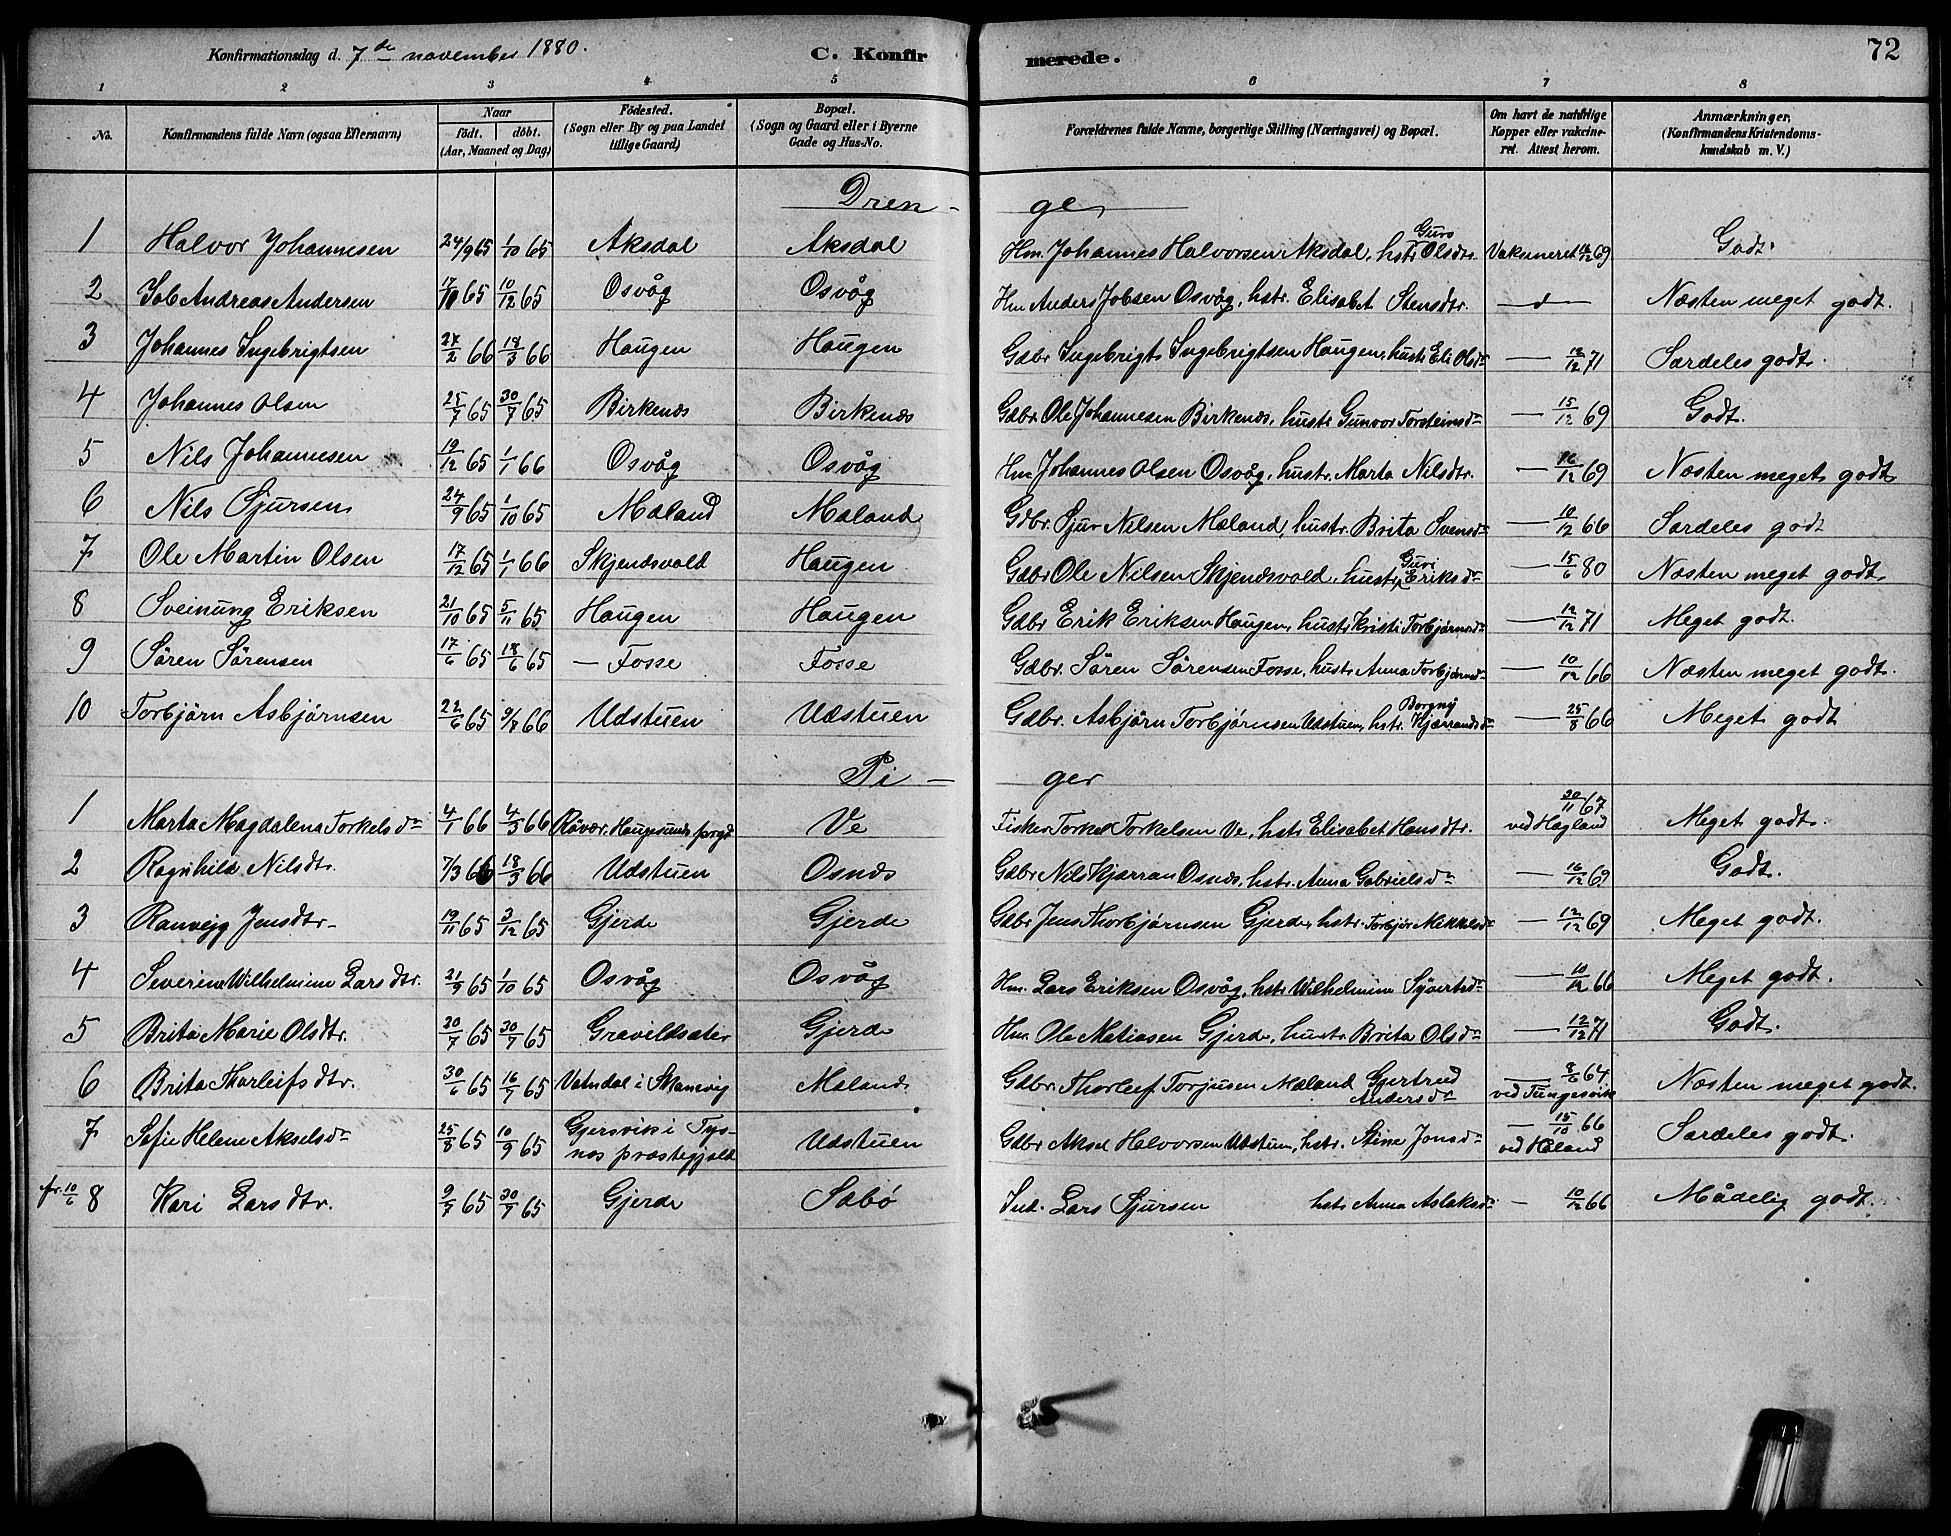 Konfirmationsdag d. 7de november 1880. C. Konfir merede. 72
1 2 3 4 5 6 7 8
No. Konfirmandens fulde Navn (ogsaa Efternavn) Naar födt. döbt. (Aar, Maaned og Dag) Födested. (Sogn eller By og paa Landet tillige Gaard) Bopæl. (Sogn og Gaard eller i Byerne Gade og Hus-No. Forældrenes fulde Navne, borgerlige Stilling (Næringsvei) og Bopæl. Om havt de naturlige Kopper eller vakcineret. Attest herom. Anmærkninger, (Konfirmandens Kristendomskundskab m. V.)
Dren- ge
1 Halvor Johannesen 24/9 65 1/10 65 Aksdal Aksdal Hm. Johannes Halvorsen Aksdal, hstr Guro Olsdtr. Vaksineret 16/12 69 Godt.
2 Job Andreas Andersen 17/10 65 10/12 65 Osvåg Osvåg Hm Anders Jobsen Osvåg, hstr. Elisabet Stensdtr. Næsten meget godt.
3 Johannes Ingebrigtsen 24/2 66 18/3 66 Haugen Haugen Gdbr Ingebrigt Ingebrigtsen Haugen, hustr Eli Olsdr — 12/12 71 Særdeles godt.
4 Johannes Olsen 25/7 65 30/7 65 Birkenes Birkenæs Gdbr. Ole Johannesen Birkenæs, hustr Gunvor Torsteinsdr — 15/12 69 Godt.
5 Nils Johannesen 19/12 65 1/1 66 Osvåg Osvåg Hm Johannes Olsen Osvåg, hustr. Marta Nilsdtr. — 16/12 69 Næsten meget godt
6 Nils Sjursen 24/9 65 1/10 65 Mæland Mæland Gdbr. Sjur Nilsen Mæland, hustr. Brita Svensdr — 10/12 66 Særdeles godt
7 Ole Martin Olsen 17/12 65 1/1 66 Skjendsvold Haugen Gdbr Ole Nilsen Skjendsvold, hustr. Guri Eriksdr — 15/6 80 Næsten meget godt
8 Sveinung Eriksen 21/10 65 5/11 65 Haugen Haugen Gdbr Erik Eriksen Haugen, hustr Kristi Torbjørnsdr — 12/12 71 Meget godt.
9 Sören Sörensen 17/6 65 18/6 65 — Fosse Fosse Gdbr. Sören Sörensen Fosse, hustr Anna Torbjörnsdr — 10/12 66 Næsten meget godt.
10 Torbjörn Asbjörnsen 22/6 65 Udstuen Udstuen Gdbr. Asbjörn Torbjörnsen Udstuen, hstr. Borgny Kjærrandsdr — 25/8 66 Meget godt
Pi- ger
1 Marta Magdalena Torkelsdr 4/1 66 4/3 66 Røvær, Haugesunds prgd Ve Fisker Torkel Torkelsen Ve, hstr Elisabet Hansdtr. 20/11 67 ved Hagland Meget godt.
2 Ragnhild Nilsdtr. 7/3 66 18/3 66 Udstuen Osnes Gdbr Nils Kjærran Osnæs, hstr. Anna Gabrielsdr — 16/12 69 Godt.
3 Ranveig Jensdtr. 19/11 65 3/12 65 Gjerde Gjerde Gdbr Jens Thorbjörnsen Gjerde, hstr. Torbjör Mikkelsdr — 12/12 69 Meget godt.
4 Severine Wilhelmine Larsdtr. 21/9 65 1/10 65 Osvåg Osvåg Hm. Lars Eriksen Osvåg, hstr Wilhelmine Syvertsdr — 10/12 66 Meget godt.
5 Brita Marie Olsdtr. 20/7 65 30/7 65 Gravildsæter Gjerde Hm. Ole Matiasen Gjerde, hustr. Brita Olsdr — 12/12 71 Godt.
6 Brita Thorleifsdtr. 30/6 65 16/7 65 Vatndal i Skonevig Mæland Gdbr. Thorleif Torjusen Mæland Gjertrud Andersdr — 8/6 64 ved Tungesvik Næsten meget godt.
7 Sofie Helene Akselsdr 25/8 65 10/9 65 Gjersvik i Tysnæs præstegjeld Udstuen Gdbr Aksel Halvorsen Udstuen, hstr. Stine Jonsdr — 15/10 66 ved Håland Særdeles godt.
fr. 10/6 8 Kari Larsdtr. 9/7 65 30/7 65 Gjerde Sæbø Ind. Lars Sjursen hstr Anna Aslaksdr — 10/12 66 Mådelig godt.